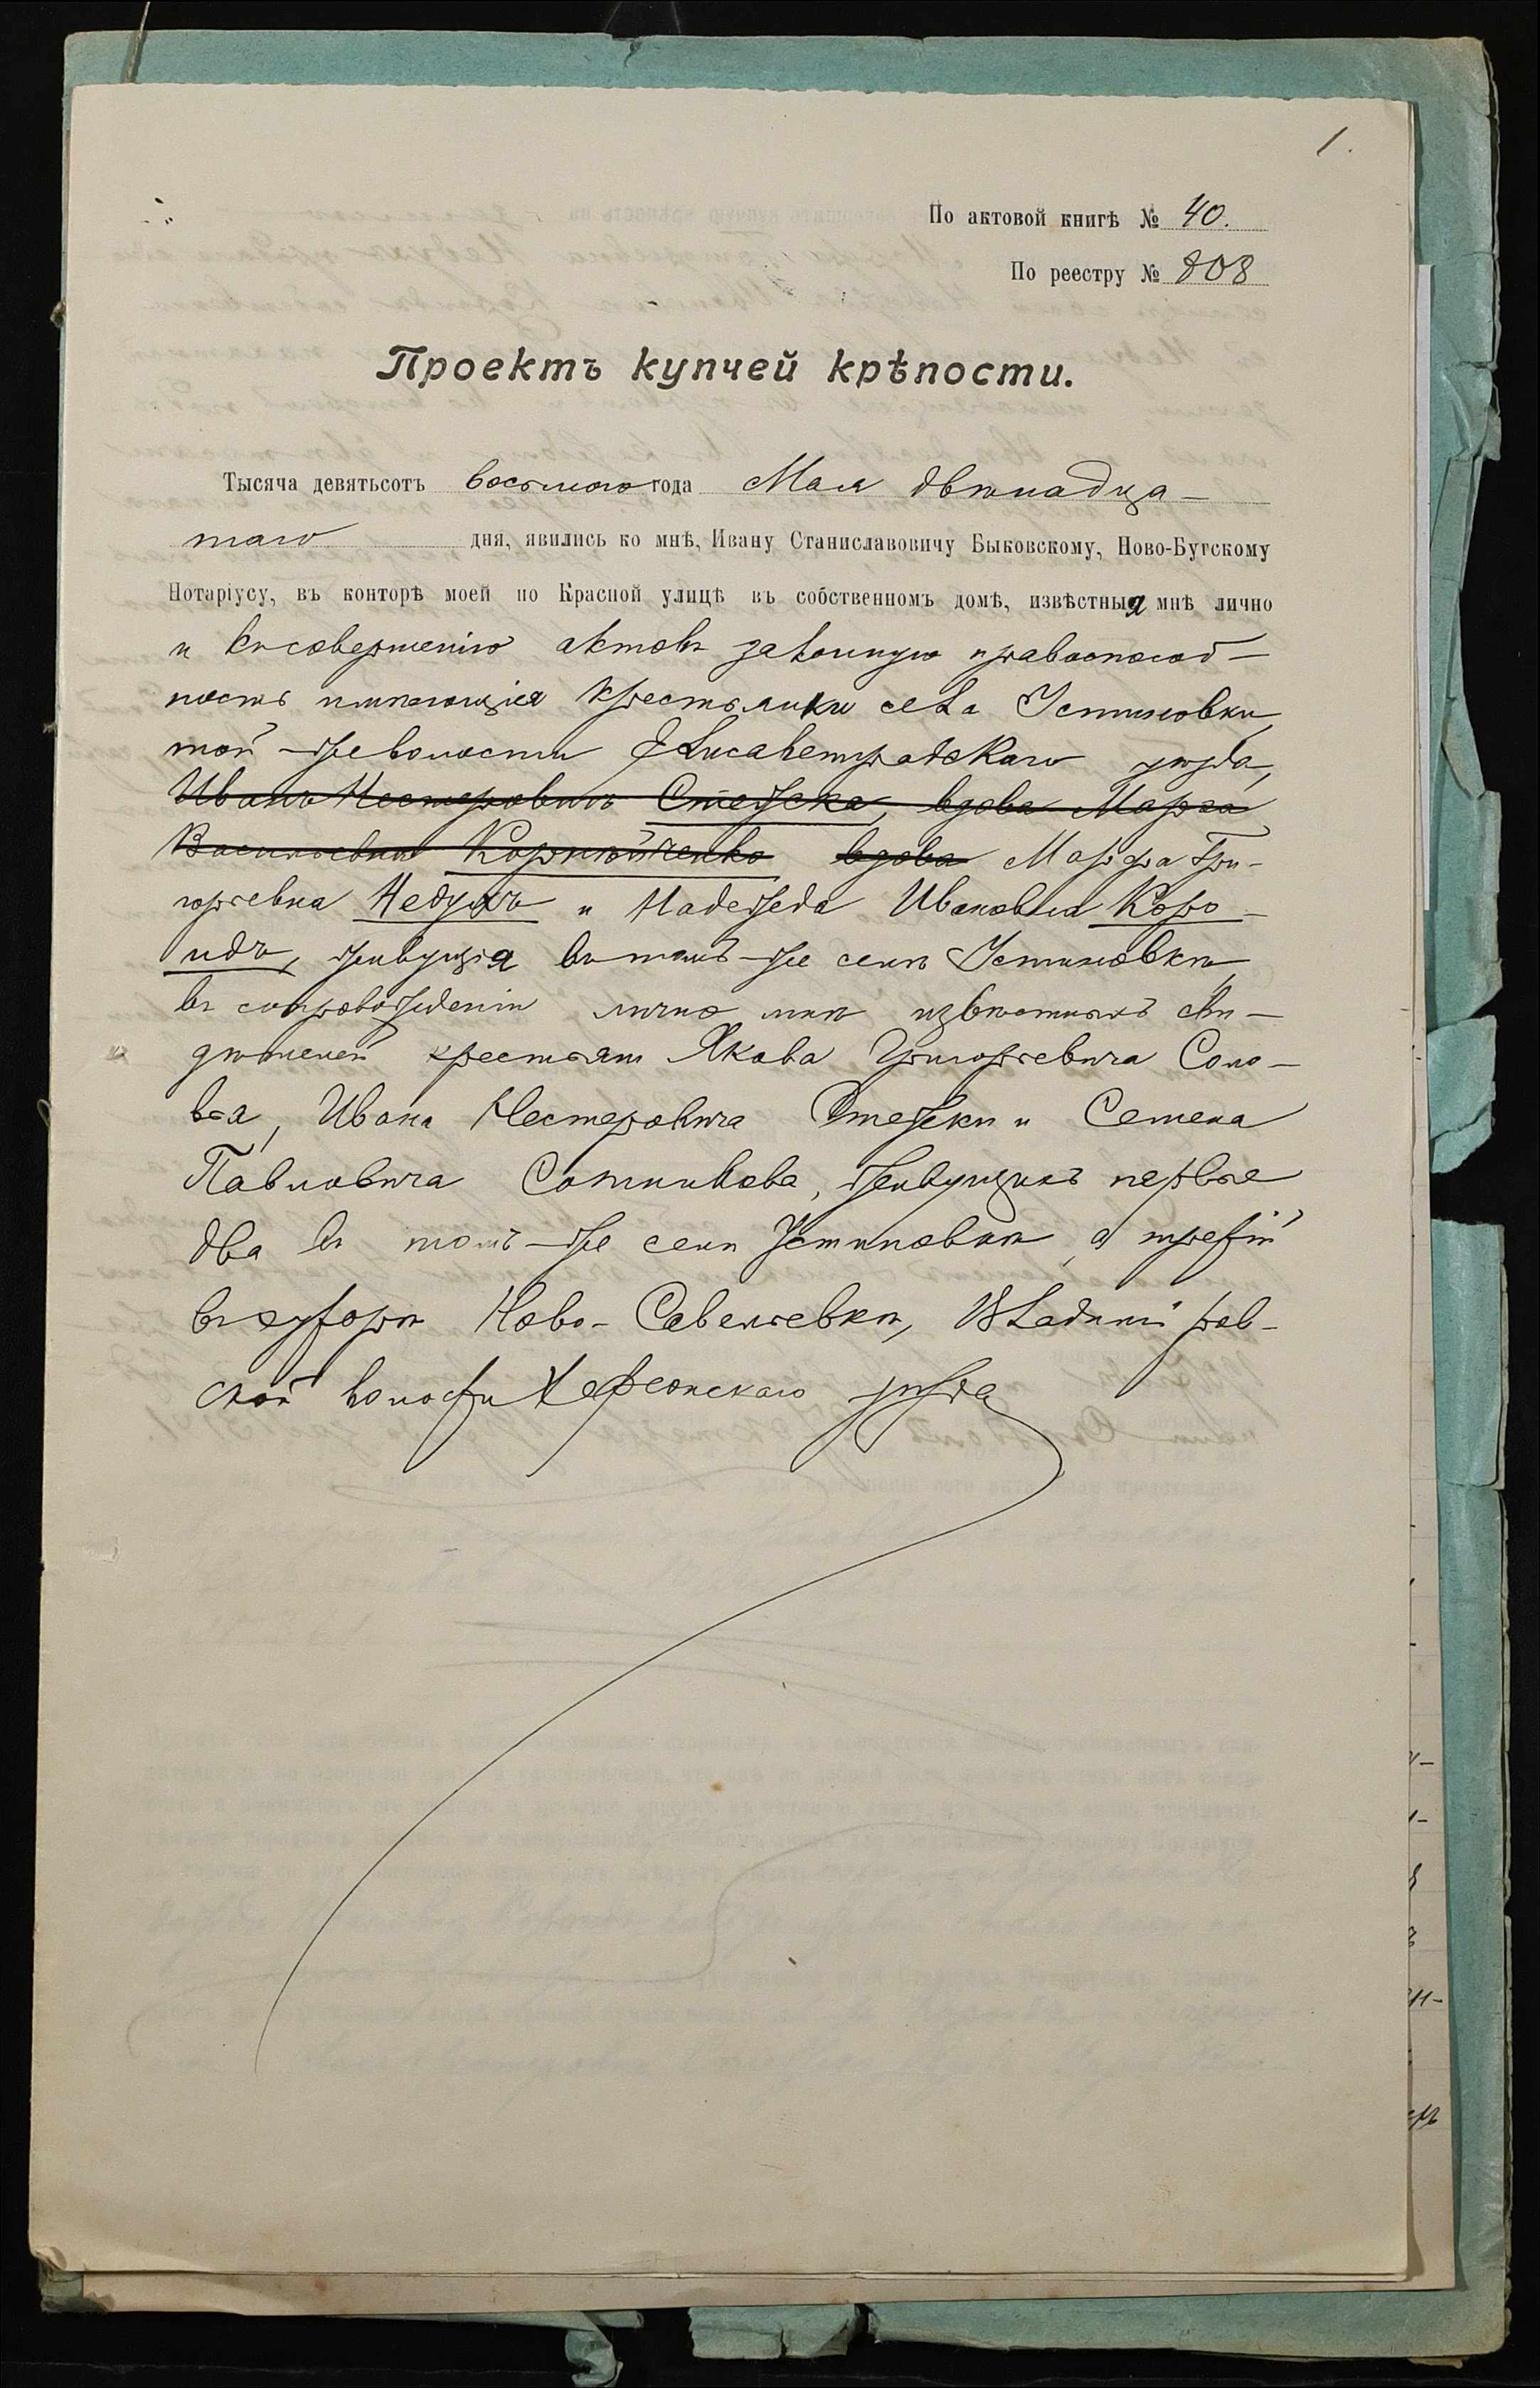 1.
По актовой книгѣ № 40.
По реестру № 808
Проектъ купчей крѣпости.
Тысяча девятьсотъ восьмого года Мая двѣнадца-
таго дня, явились ко мнѣ, Ивану Станиславовичу Быковскому, Ново-Бугскому
Нотаріусу, въ конторѣ моей по Красной улицѣ въ собственномъ домѣ, извѣстныя мнѣ лично
и къ совершенію актовъ законную правоспособ-
ность имѣющія крестьянки села Устиновки
той-же волости Елисаветградскаго уѣзда,
Иванъ Нестеровичъ Стежска, вдова Марѳа
Васильевна Корнѣйченко вдова Марфа Гри-
горьевна Недухъ и Надежда Ивановна Коро-
идъ, живущія въ томъ-же селѣ Устиновкѣ,
въ сопровожденіи лично мнѣ извѣстныхъ сви-
дѣтелей крестьян Якова Григорьевича Соло-
вья, Ивана Нестеровича Стежки и Семена
Павловича Сотникова, живущихъ первые
два въ томъ-же селѣ Устиновкѣ, а третій
въ хуторѣ Ново-Савельевкѣ, Владиміров-
ской волости Херсонскаго уѣзда